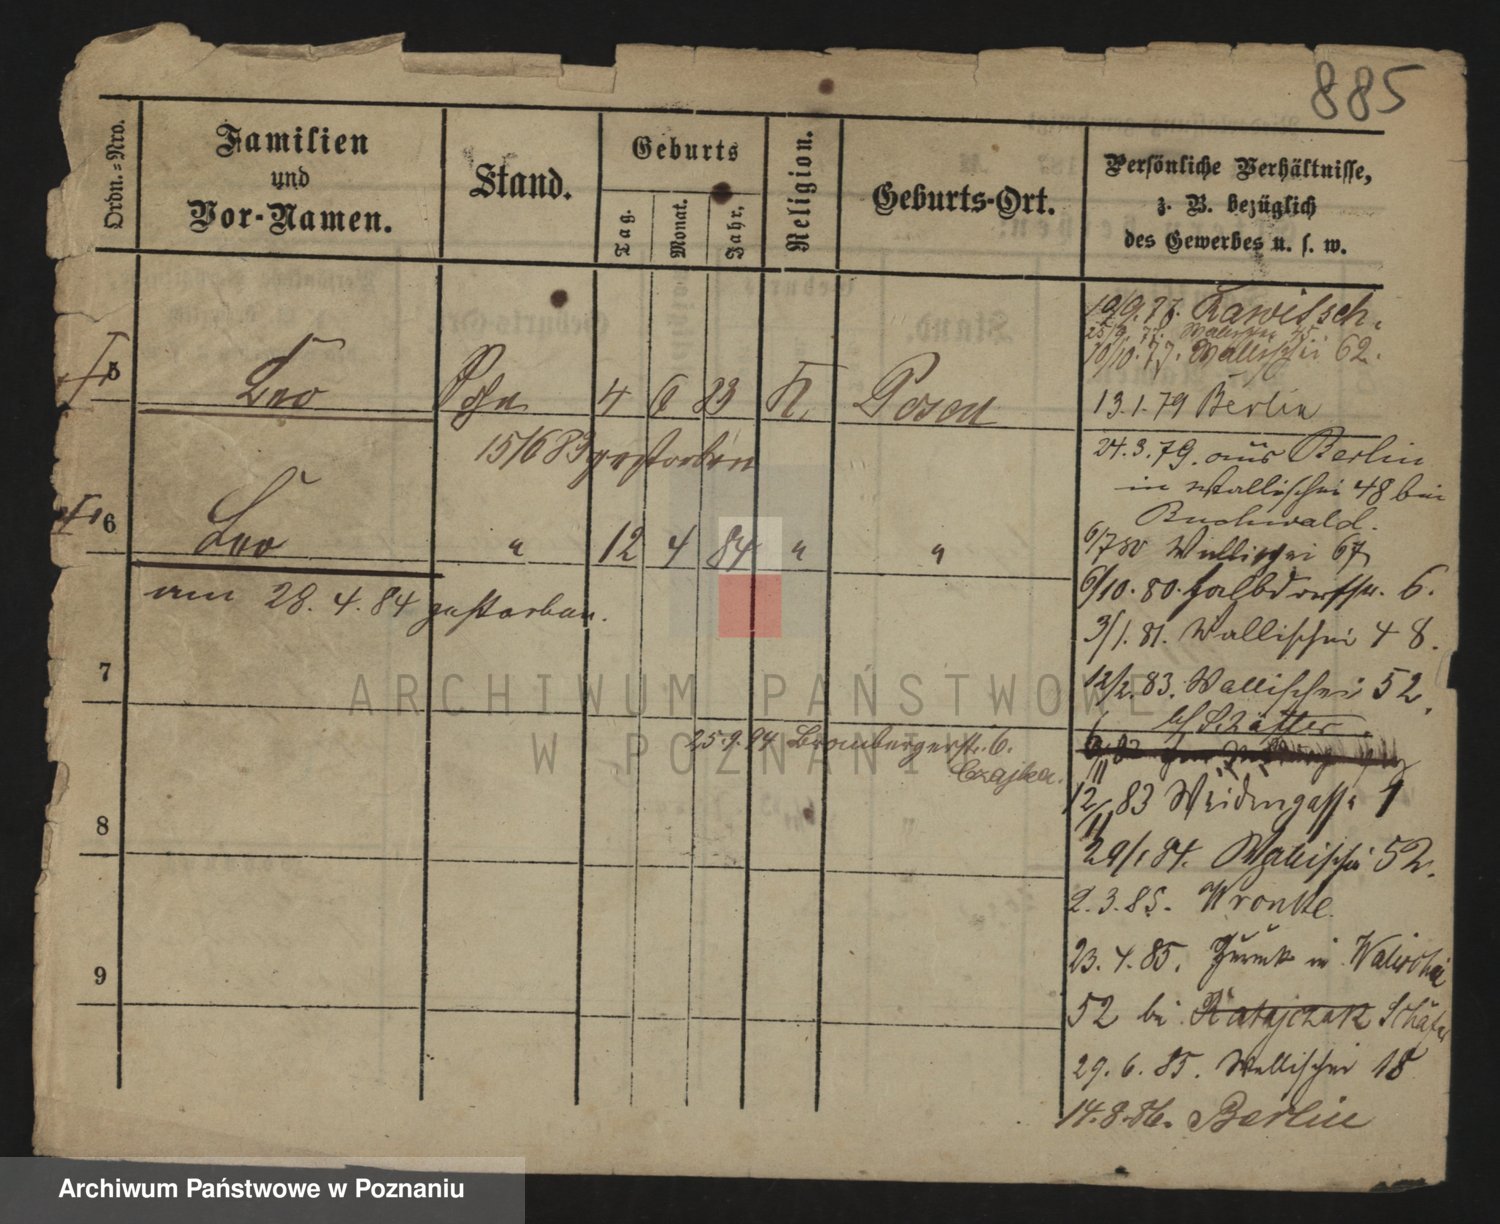 885
Ordn.-Nro.
Familien
und
Vor-Namen.
Stand.
Geburts
Tag.
Monat.
Jahr.
Religion.
Geburts-Ort.
Persönliche Verhältnisse,
z. B. bezüglich
des Gewerbes u. s. w.
19/9.77. Rawitsch.
10/10.77. Wallischei 62.
5 Leo Sohn 4 6 83 K Posen
13.1.79 Berlin
15/6 83 gestorben
24.3.79. aus Berlin
in Wallischei 48 bei
Buchwald.
6 Leo " 12 4 84 " "
6/7 80 Wallischei 67
am 28.4.84 gestorben.
6/10.80. Halbdorfstr. 6.
3/1.81. Wallischei 48.
7
12/2.83. Wallischei 52.
b/ Schäffer
25.9.94 Brombergerstr. 6.
Czajka.
12/11 83 Weidengasse 1
8
29/1 84. Wallischei 52.
2.3.85. Wronke.
23.4.85. Zurück in Wallischei
9
52 bei Ratajczak Schäfer
29.6.85. Wallischei 18
14.8.86. Berlin
ARCHIWUM PAŃSTWOWE
W POZNANIU
Archiwum Państwowe w Poznaniu